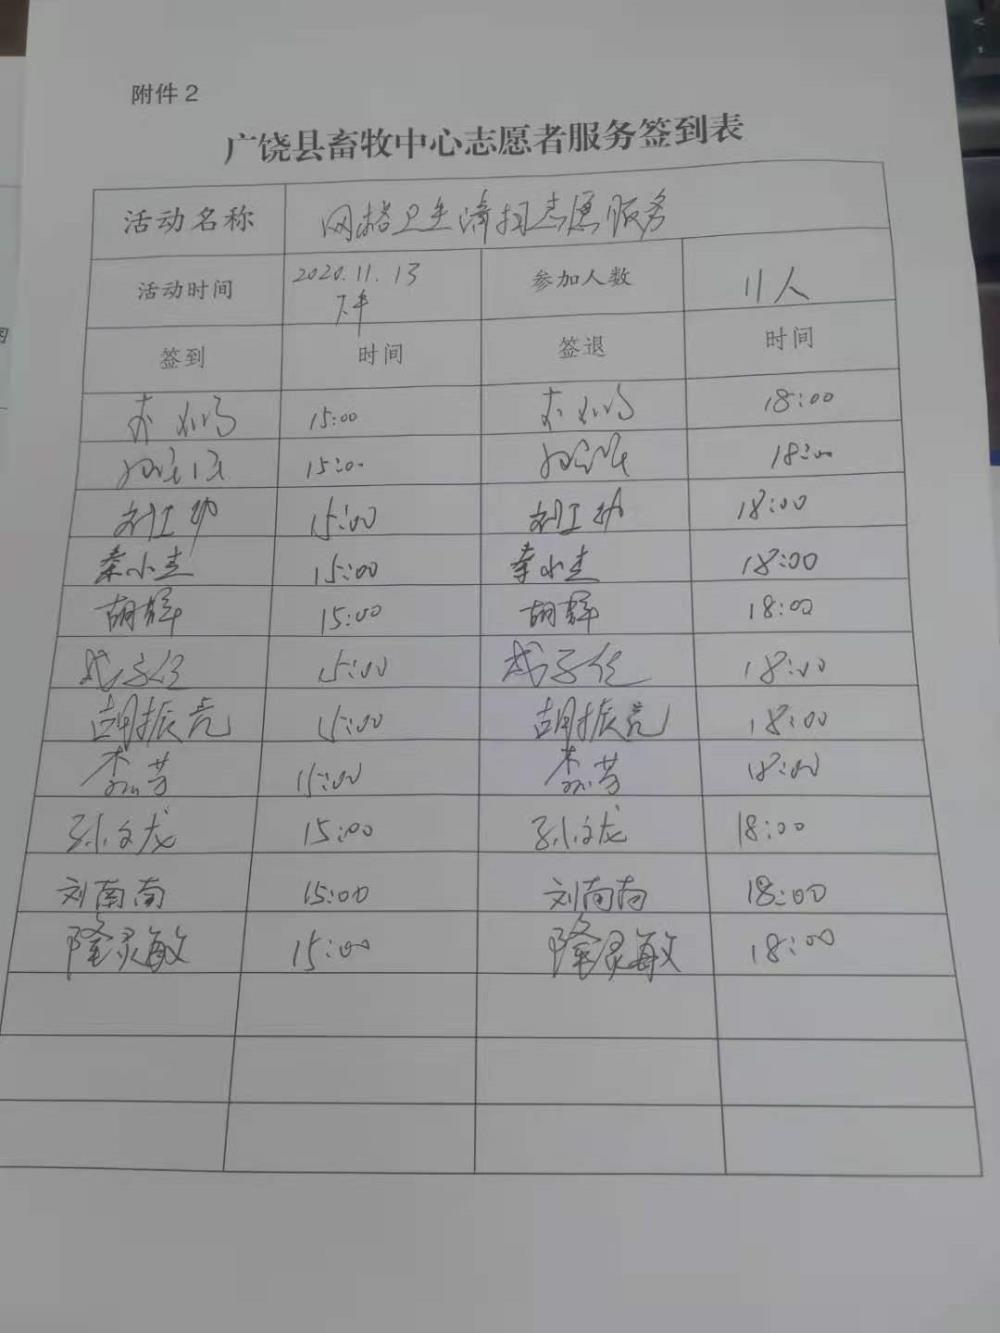 附件2
广饶县畜牧中心志愿者服务签到表
活动名称 网格卫生清扫志愿服务
活动时间 2020.11.13 下午 参加人数 11人
签到 时间 签退 时间
15:00 18:00
15:00 18:00
15:00 18:00
秦小杰 15:00 秦小杰 18:00
胡辉 15:00 胡辉 18:00
15:00 18:00
胡振亮 15:00 胡振亮 18:00
15:00 18:00
孙文龙 15:00 孙文龙 18:00
刘南南 15:00 刘南南 18:00
隆灵敏 15:00 隆灵敏 18:00